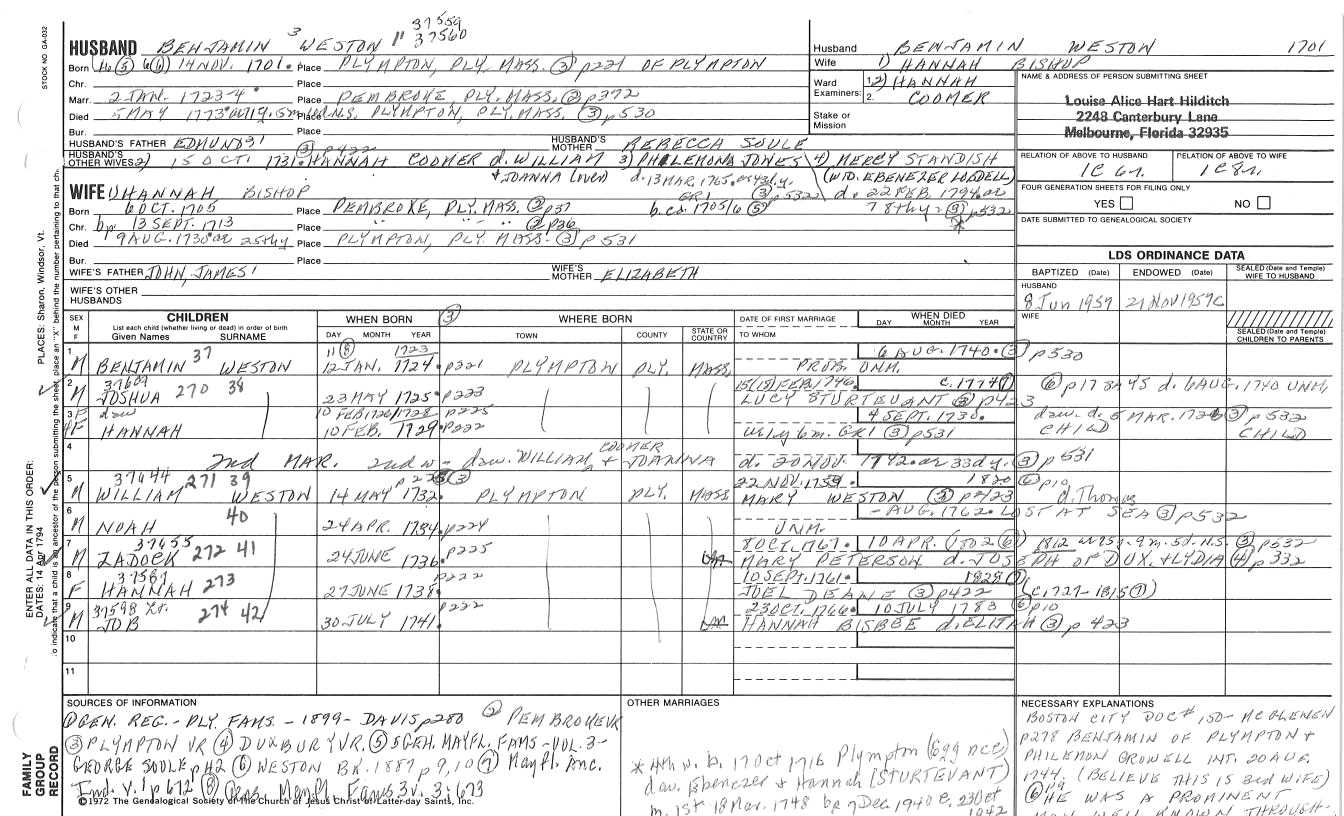 37559
HUSBAND BENJAMIN 3 WESTON 37560
Born 14 NOV. 1701. Place PLYMPTON, PLY. MASS. ③ p221 OF PLYMPTON
Chr. Place
Marr. 2 JAN. 1723-4. Place PEMBROKE, PLY. MASS. ② p372
Died 5 MAY 1773 Place PLYMPTON, PLY. MASS. ③ p530
Bur. Place
HUSBAND'S FATHER EDMUND ③ p422 HUSBAND'S MOTHER REBECCA SOULE
HUSBAND'S OTHER WIVES 2) 15 OCT. 1731. HANNAH COOMER d. WILLIAM 3) PHILEMON JONES 4) MERCY STANDISH
+ JOANNA d. 13 MAR. 1765. (WID. EBENEZER LOBDELL)
WIFE 1) HANNAH BISHOP GR1 ③ p532 d. 22 FEB. 1794. or
Born 6 OCT. 1705 Place PEMBROKE, PLY. MASS. ② p37 b. ca. 1705/6 ⑤ 78thy. ③ p532
Chr. bp. 13 SEPT. 1713 Place " " " ② p36 *
Died 9 AUG. 1730 or 25thy Place PLYMPTON, PLY. MASS. ③ p531
Bur. Place
WIFE'S FATHER JOHN, JAMES' WIFE'S MOTHER ELIZABETH
WIFE'S OTHER HUSBANDS
Husband BENJAMIN WESTON 1701
Wife 1) HANNAH BISHOP
Ward Examiners: 1. 2) HANNAH
2. COOMER
Stake or Mission
NAME & ADDRESS OF PERSON SUBMITTING SHEET
Louise Alice Hart Hilditch
2248 Canterbury Lane
Melbourne, Florida 32935
RELATION OF ABOVE TO HUSBAND RELATION OF ABOVE TO WIFE
1C 6r. 1C 8r.
FOUR GENERATION SHEETS FOR FILING ONLY
YES NO
DATE SUBMITTED TO GENEALOGICAL SOCIETY
LDS ORDINANCE DATA
BAPTIZED (Date) ENDOWED (Date) SEALED (Date and Temple) WIFE TO HUSBAND
HUSBAND
8 Jun 1957 21 NOV 1957
WIFE
SEALED (Date and Temple) CHILDREN TO PARENTS
STOCK NO. GA-032
PLACES: Sharon, Windsor, Vt.
ENTER ALL DATA IN THIS ORDER:
DATES: 14 Apr 1794
To indicate that a child is an ancestor of the person submitting the sheet, place an "X" behind the number pertaining to that ch
SEX M F CHILDREN WHEN BORN ③ WHERE BORN DATE OF FIRST MARRIAGE WHEN DIED
List each child (whether living or dead) in order of birth
Given Names SURNAME DAY MONTH YEAR TOWN COUNTY STATE OR COUNTRY TO WHOM DAY MONTH YEAR
1 M BENJAMIN 37 WESTON 11 ⑧ 1723 12 JAN. 1724. p221 PLYMPTON PLY. MASS. 6 AUG. 1740. ③ p530
PROB. UNM.
2 M 37609 JOSHUA 270 38 23 MAY 1725. p223 FEB. 1746. c. 1774 ⑥ p178 d. 6 AUG. 1740 UNM.
LUCY STURTEVANT ③ p423
3 F daw 10 FEB 1726/1728 p225 4 SEPT. 1730. daw. d. 5 MAR. 1726 ③ p532
F HANNAH 10 FEB. 1729. p222 GR1 ③ p531 CHILD CHILD
4 2nd MAR. 2nd w - daw. WILLIAM COOMER + JOANNA d. 20 NOV. 1742. or 33dy. ③ p531
5 M 37644 271 39 WILLIAM WESTON 14 MAY 1732. p225 ③ PLYMPTON PLY. MASS 22 NOV. 1759. 1820 ⑥ p10
MARY WESTON ③ p423 d. Thomas
6 M NOAH 40 24 APR. 1734. p224 - AUG. 1762. LOST AT SEA ③ p532
UNM.
7 M 37655 ZADOCK 272 41 24 JUNE 1736. p225 OCT. 1767. 10 APR. 1812 N.S. ③ p532
MARY PETERSON d. JOSEPH OF DUX. + LYDIA ④ p332
8 F 37587 HANNAH 273 27 JUNE 1738. p222 10 SEPT. 1761. 1828
JOEL DEANE ③ p422 (c. 1727-1815 ⑦)
9 M 37598 JOB 274 42 30 JULY 1741. p222 23 OCT. 1766. 10 JULY 1783 ⑥ p10
HANNAH BISBEE d. ELIJAH ③ p423
10
11
SOURCES OF INFORMATION
① GEN. REG. - PLY. FAMS. - 1899 - DAVIS p280 ② PEMBROKE VR
③ PLYMPTON VR ④ DUXBURY VR. ⑤ 5 GEN. MAYFL. FAMS - VOL. 3 -
GEORGE SOULE p42 ⑥ WESTON BK. 1887 p9, 10 ⑦ Mayfl. Anc.
Ind. v. 1 p672 ⑧ Mayfl. Fams 3 v. 3: 673
©1972 The Genealogical Society of The Church of Jesus Christ of Latter-day Saints, Inc.
FAMILY GROUP RECORD
OTHER MARRIAGES
* 4th w. b. 17 Oct 1716 Plympton
daw. Ebenezer & Hannah (STURTEVANT)
m. 1st 18 Mar. 1748 bp 7 Dec. 1940 e. 23 Oct
1942
NECESSARY EXPLANATIONS
BOSTON CITY DOC # 150 - MCGLENEN
p278 BENJAMIN OF PLYMPTON +
PHILEMON CROWELL INT. 20 AUG.
1744. (BELIEVE THIS IS 3rd WIFE)
⑥ p9 HE WAS A PROMINENT
MAN WELL KNOWN THROUGH-